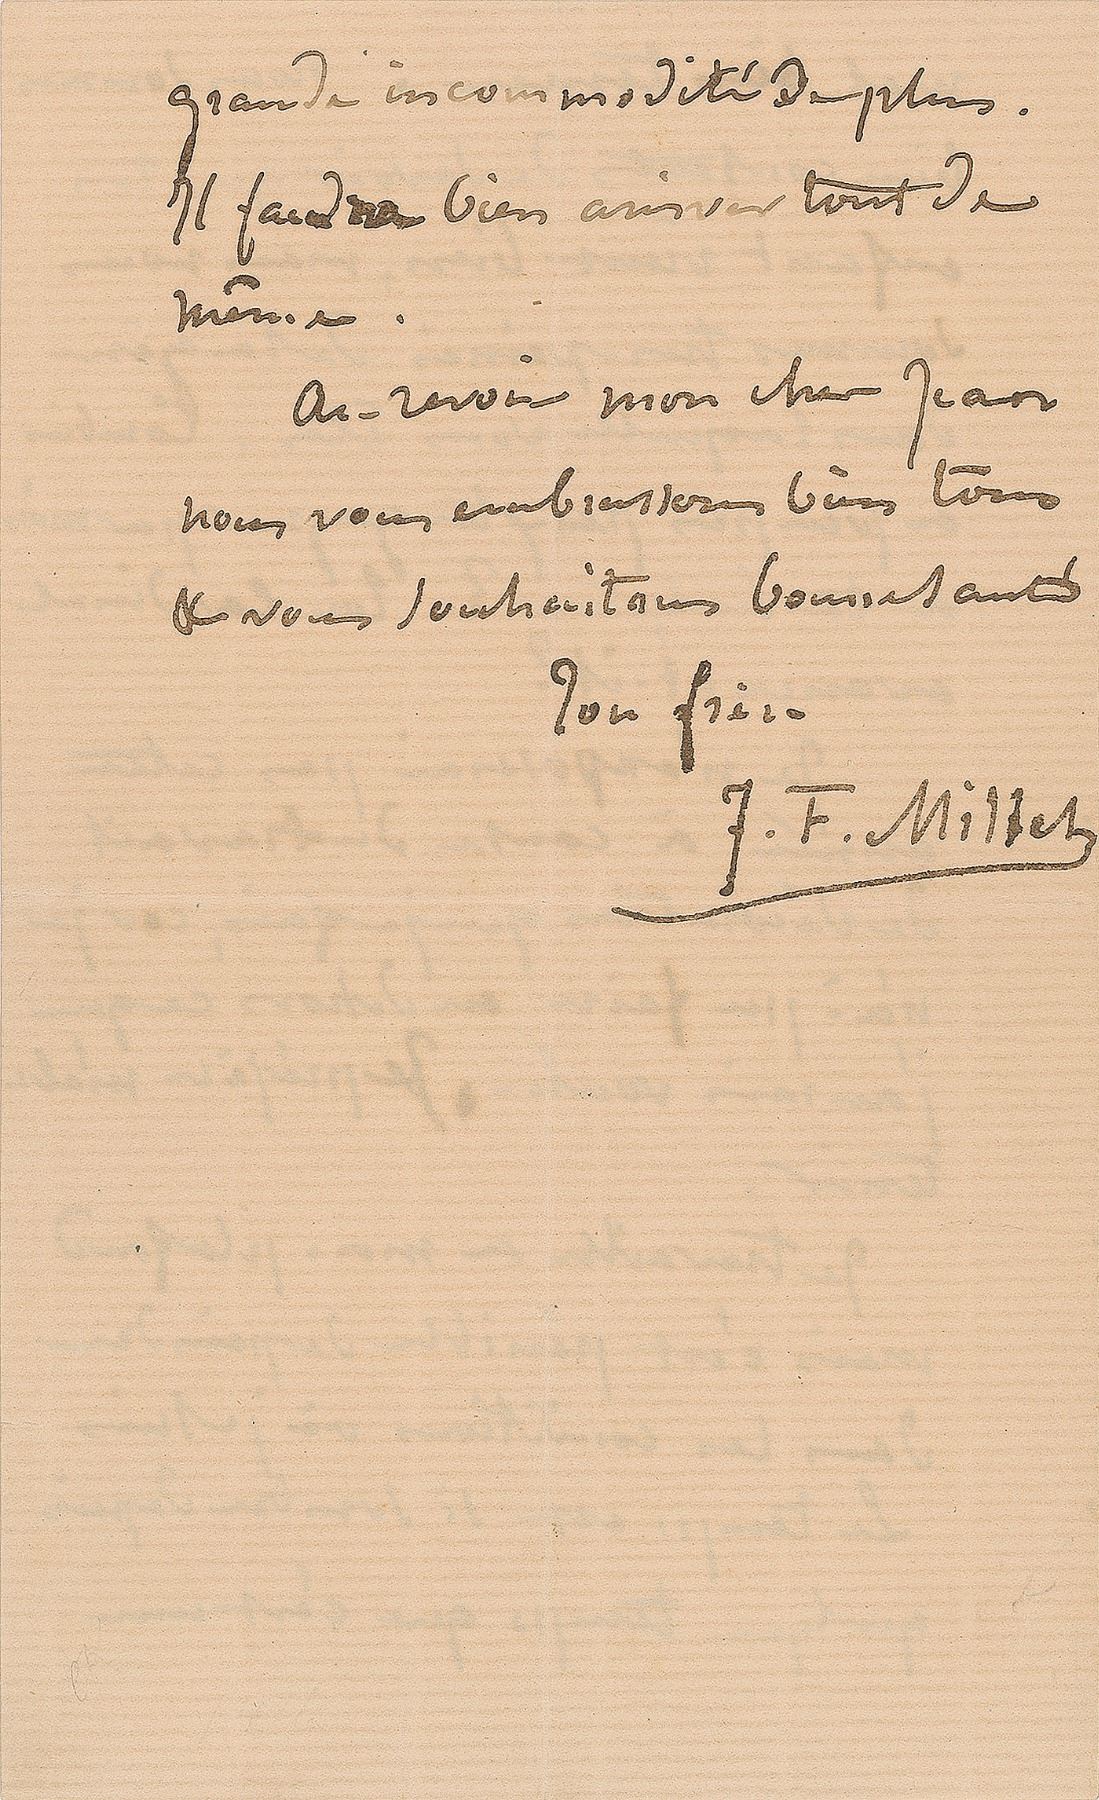 grande incommodité de plus.
Il faudra bien arriver tout de
même.
Au-revoir mon cher Jean
nous vous embrassons bien tous
& vous souhaitons bonne santé
Ton frère
J. F. Millet